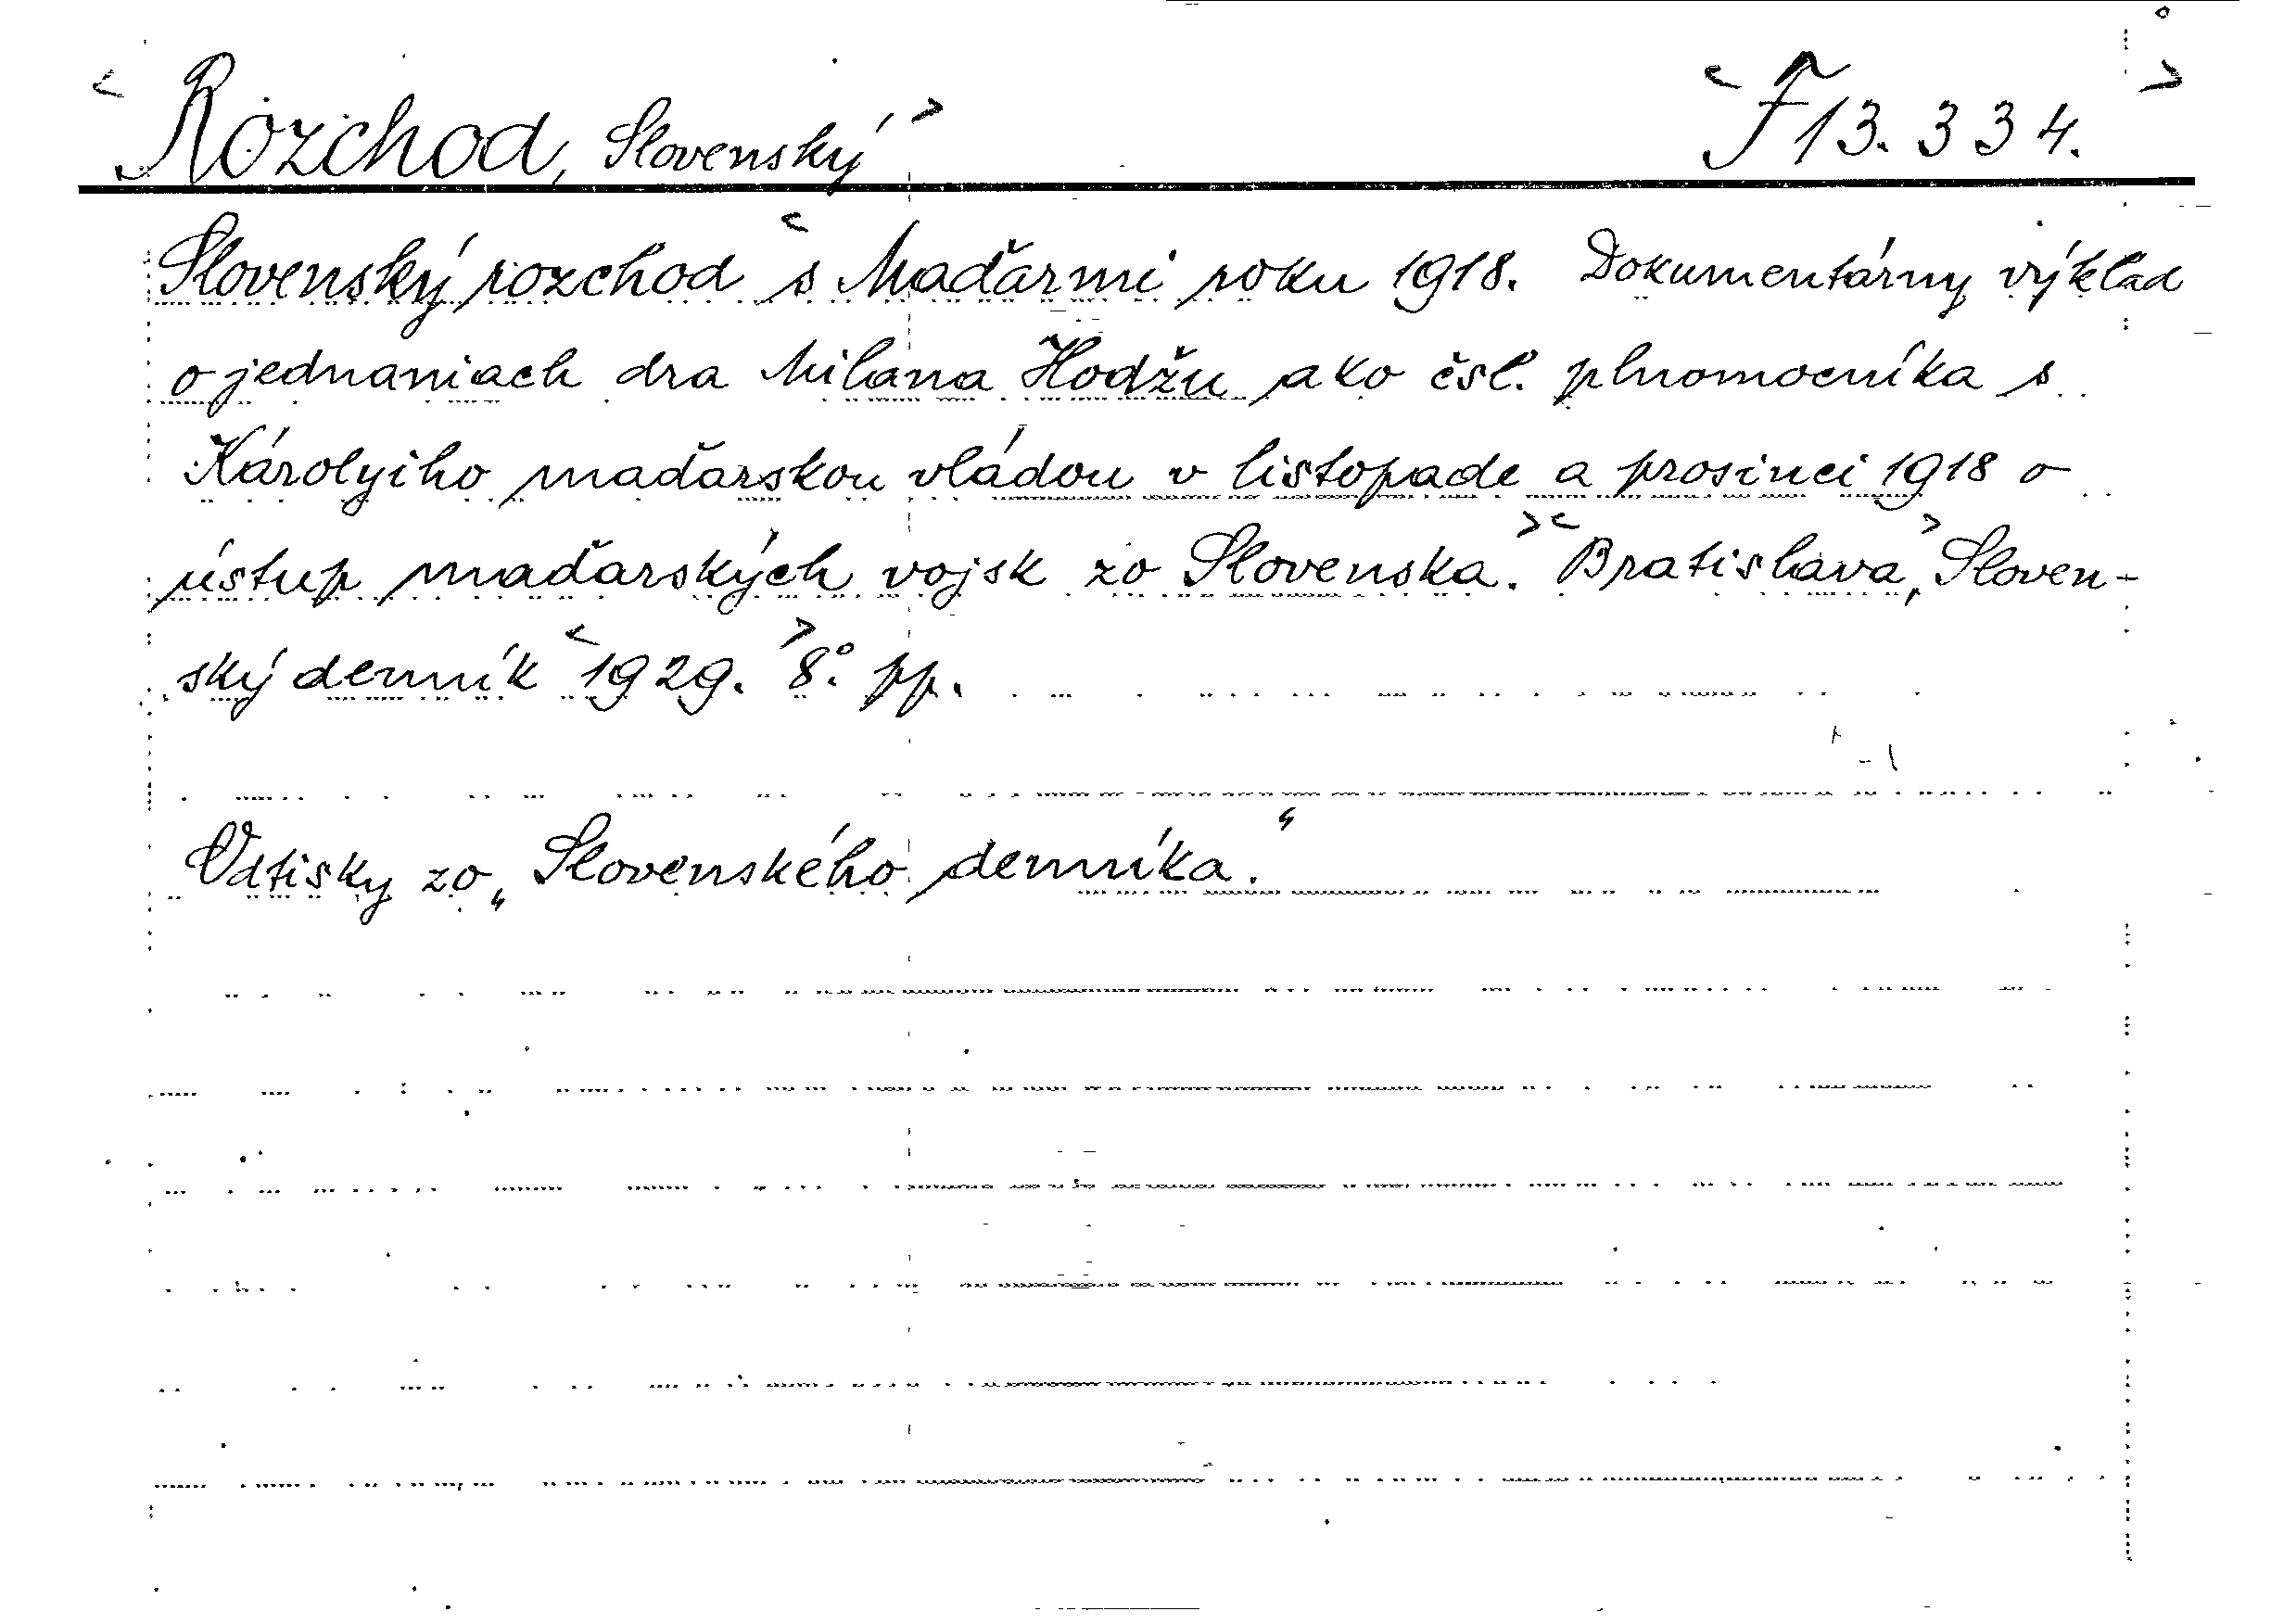 < Rozchod, Slovenský > < F 13.334. >
Slovenský rozchod < s Maďarmi roku 1918. Dokumentárny výklad
o jednaniach dra Milana Hodžu ako čsl. plnomocníka s
Károlyiho maďarskou vládou v listopade a prosinci 1918 o
ústup maďarských vojsk zo Slovenska. > < Bratislava, > Sloven-
ský denník < 1929. > 8° pp.
Odtisky zo „Slovenského denníka."